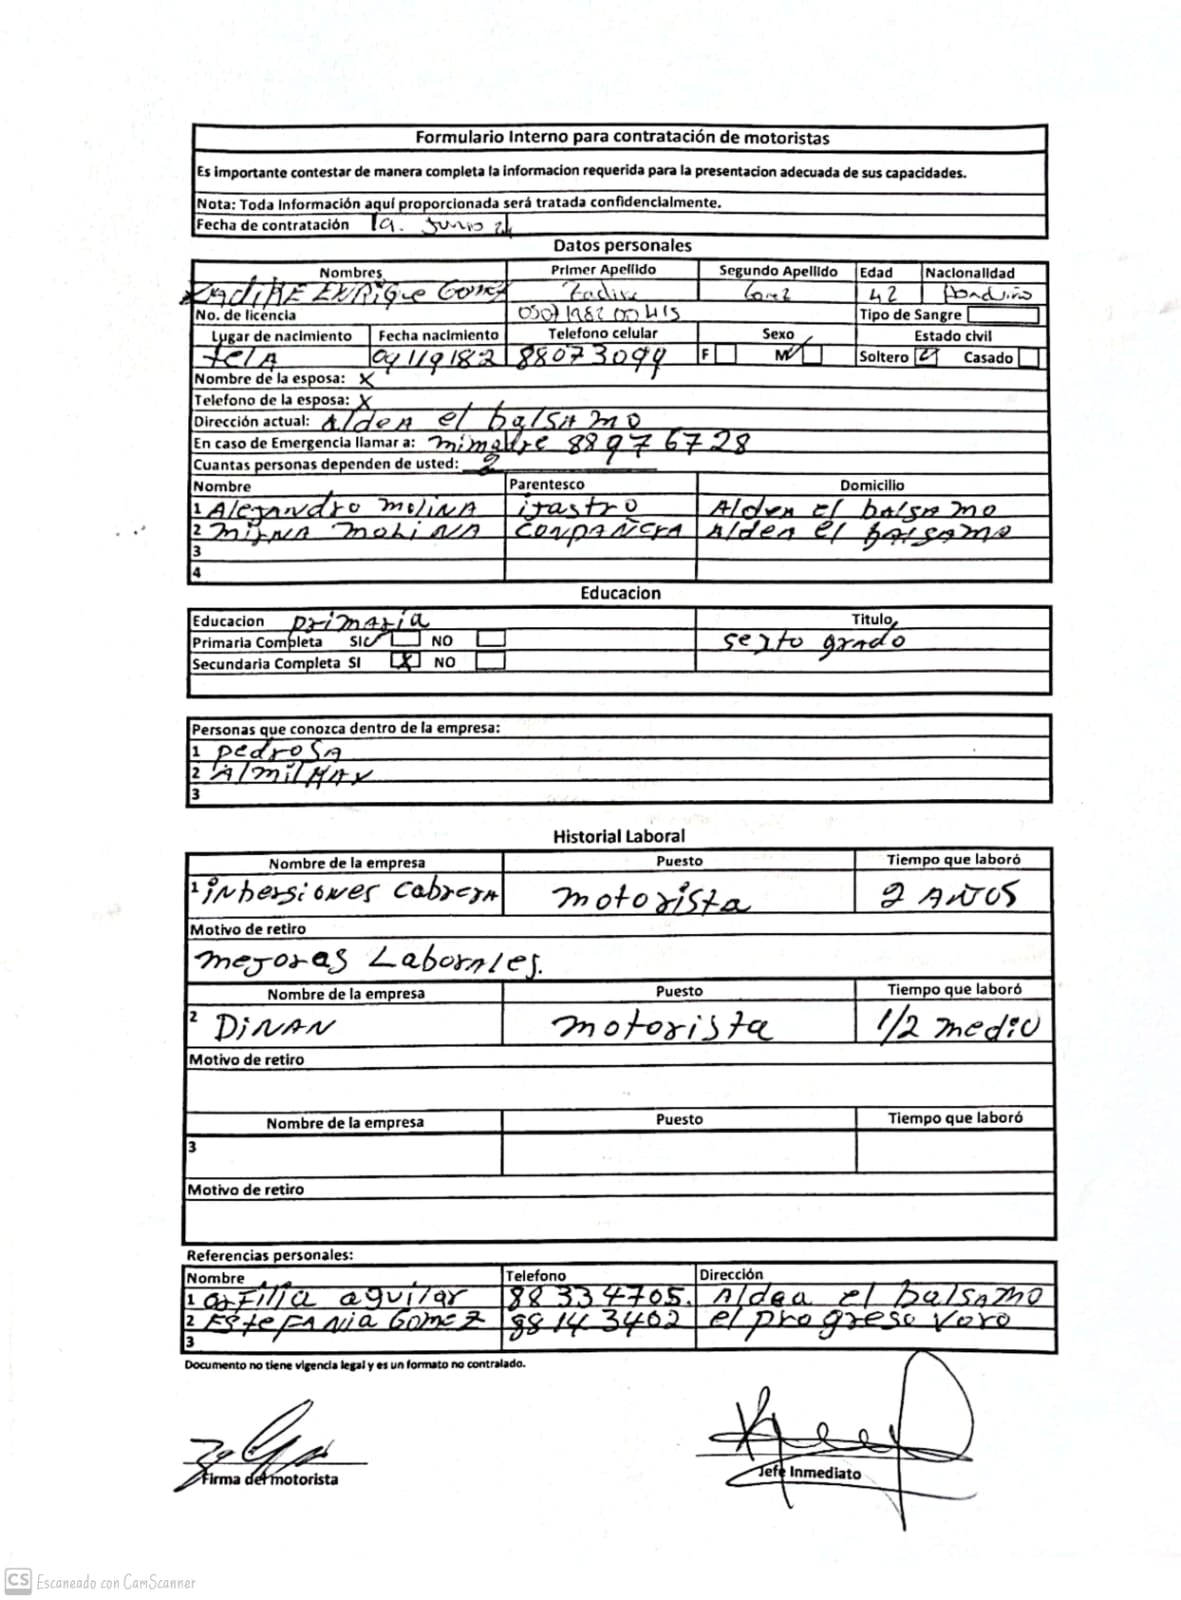 Formulario Interno para contratación de motoristas
Es importante contestar de manera completa la informacion requerida para la presentacion adecuada de sus capacidades.
Nota: Toda Información aquí proporcionada será tratada confidencialmente.
Fecha de contratación 19. Junio 24
Datos personales
Nombres Primer Apellido Segundo Apellido Edad Nacionalidad
ENRique Gomez Gomez 42
No. de licencia Tipo de Sangre
Lugar de nacimiento Fecha nacimiento Telefono celular Sexo Estado civil
telA 88073094 F M Soltero Casado
Nombre de la esposa: X
Telefono de la esposa: X
Dirección actual: AldeA el balsAmo
En caso de Emergencia llamar a: mimadre 88976728
Cuantas personas dependen de usted: 2
Nombre Parentesco Domicilio
1 Alejandro molinA ijastro Aldea el balsamo
2 mirNA moliNA conpAñerA Aldea el balsamo
3
4
Educacion
Educacion primaria Titulo
Primaria Completa SI NO sexto grado
Secundaria Completa SI X NO
Personas que conozca dentro de la empresa:
1 pedrosA
2 AlmilMAX
3
Historial Laboral
Nombre de la empresa Puesto Tiempo que laboró
1 inbersiones cabrerA motorista 2 AÑOS
Motivo de retiro
mejoras Laborales.
Nombre de la empresa Puesto Tiempo que laboró
2 DiNAN motorista 1/2 medio
Motivo de retiro
Nombre de la empresa Puesto Tiempo que laboró
3
Motivo de retiro
Referencias personales:
Nombre Telefono Dirección
1 aguilar 88334705. Aldea el balsAmo
2 EstefANia Gomez 88143402 el progreso Yoro
3
Documento no tiene vigencia legal y es un formato no contralado.
Firma del motorista Jefe Inmediato
CS Escaneado con CamScanner